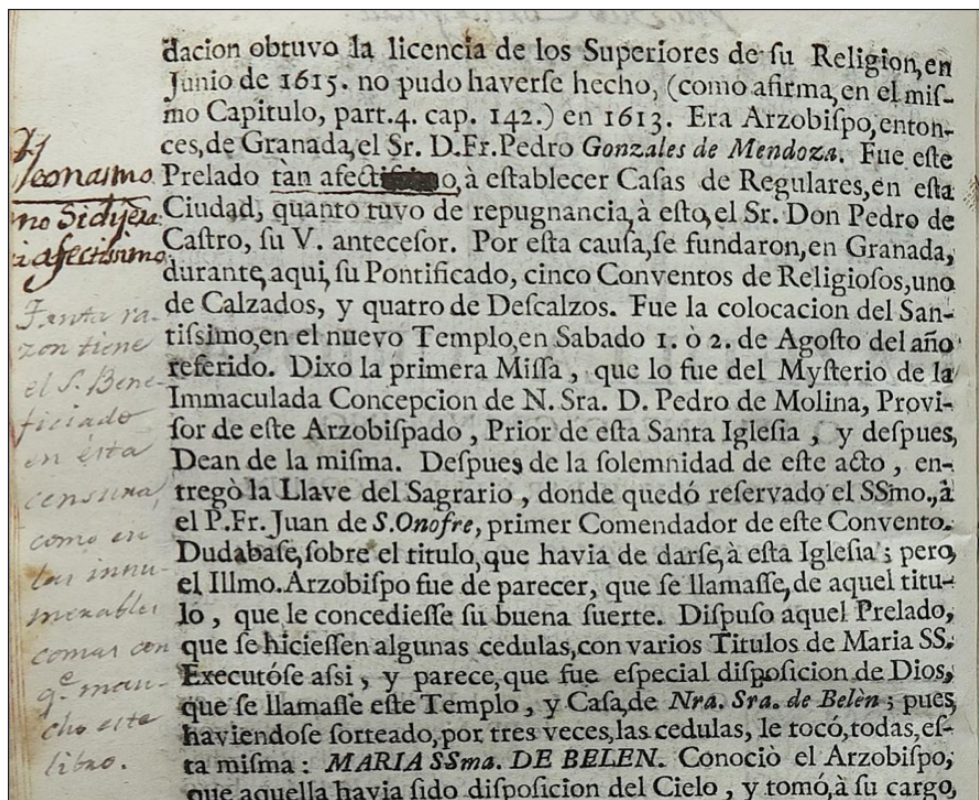 dacion obtuvo la licencia de los Superiores de ſu Religion, en
Junio de 1615. no pudo haverſe hecho, (como afirma, en el miſ-
mo Capitulo, part.4. cap. 142.) en 1613. Era Arzobiſpo, enton-
ces, de Granada, el Sr. D. Fr. Pedro Gonzales de Mendoza. Fue eſte
Prelado tàn afecti o, à eſtablecer Caſas de Regulares, en eſta
Ciudad, quanto tuvo de repugnancia, à eſto, el Sr. Don Pedro de
Caſtro, ſu V. anteceſor. Por eſta cauſa, ſe fundaron, en Granada,
durante, aqui, ſu Pontificado, cinco Conventos de Religioſos, uno
de Calzados, y quatro de Deſcalzos. Fue la colocacion del San-
tiſsimo, en el nuevo Templo, en Sabado 1. ò 2. de Agoſto del año
referido. Dixo la primera Miſſa, que lo fue del Myſterio de la
Immaculada Concepcion de N. Sra. D. Pedro de Molina, Provi-
ſor de eſte Arzobiſpado, Prior de eſta Santa Igleſia, y deſpues,
Dean de la miſma. Deſpues de la ſolemnidad de eſte acto, en-
tregò la Llave del Sagrario, donde quedó reſervado el SSmo., à
el P. Fr. Juan de S. Onofre, primer Comendador de eſte Convento.
Dudabaſe, ſobre el titulo, que havia de darſe, à eſta Igleſia; pero,
el Illmo. Arzobiſpo fue de parecer, que ſe llamaſſe, de aquel titu-
lo, que le concedieſſe ſu buena ſuerte. Diſpuſo aquel Prelado,
que ſe hicieſſen algunas cedulas, con varios Titulos de Maria SS.
Executóſe aſsi, y parece, que fue eſpecial diſpoſicion de Dios,
que ſe llamaſſe eſte Templo, y Caſa, de Nra. Sra. de Belèn; pues,
haviendoſe ſorteado, por tres veces, las cedulas, le tocó, todas, eſ-
ta miſma: MARIA SSma. DE BELEN. Conociò el Arzobiſpo,
que aquella havia ſido diſpoſicion del Cielo, y tomó, à ſu cargo,
no Si dijera
afectissimo
Tanta ra-
zon tiene
el S. Bene-
ficiado
en ésta
censura,
como en
las innu-
merables
comas con
q.e man-
cho este
libro.